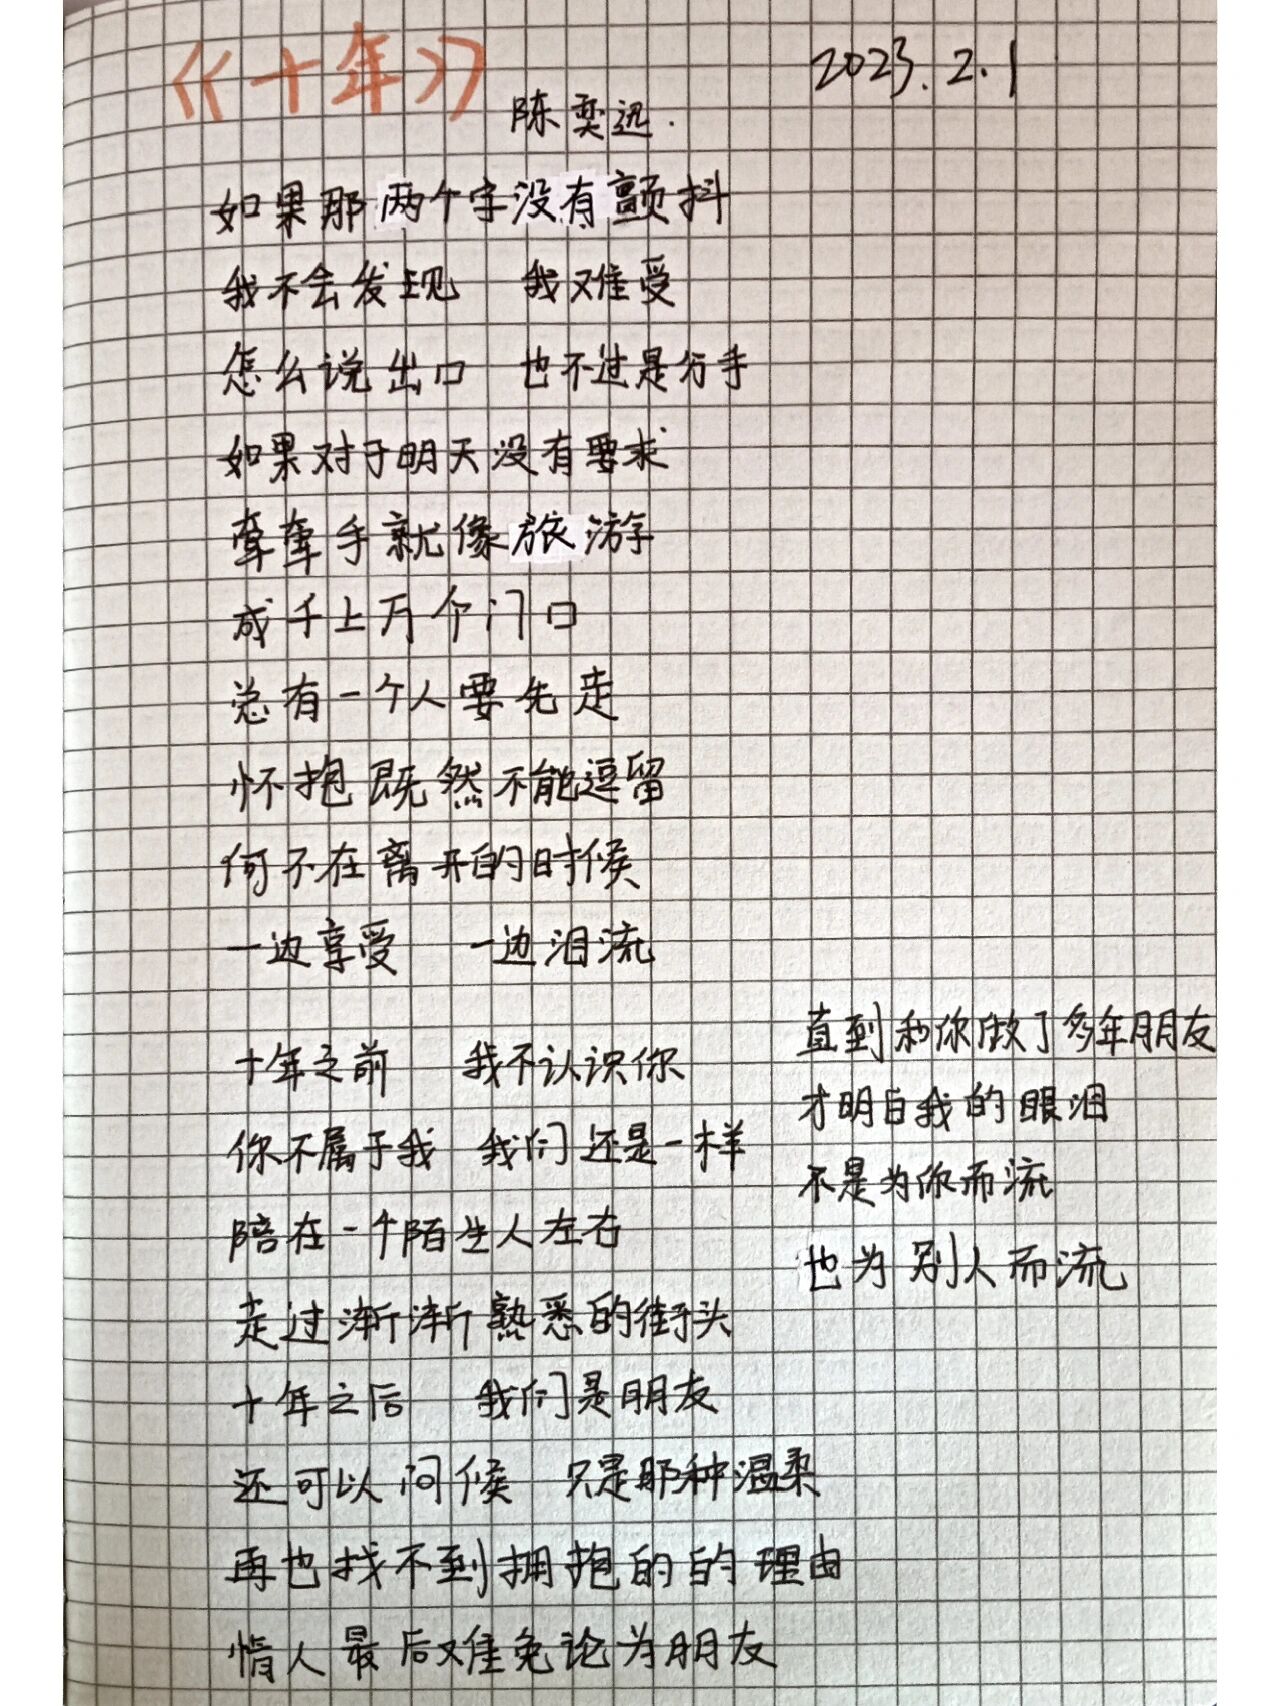 《十年》
2023.2.1
陈奕迅.
如果那两个字没有颤抖
我不会发现 我难受
怎么说出口 也不过是分手
如果对于明天没有要求
牵牵手就像旅游
成千上万个门口
总有一个人要先走
怀抱既然不能逗留
何不在离开的时候
一边享受 一边泪流
十年之前 我不认识你
你不属于我 我们还是一样
陪在一个陌生人左右
走过渐渐熟悉的街头
十年之后 我们是朋友
还可以问候 只是那种温柔
再也找不到拥抱的的理由
情人最后难免论为朋友
直到和你做了多年朋友
才明白我的眼泪
不是为你而流
也为别人而流